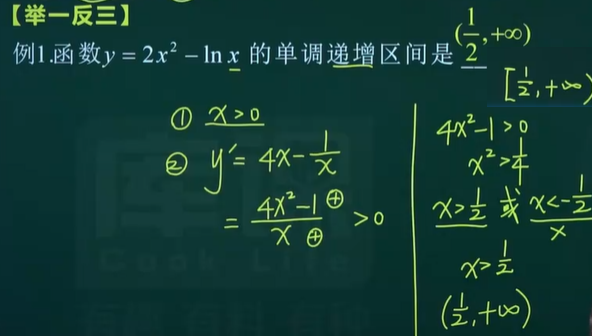 【举一反三】
例1.函数y = 2x² − ln x 的单调递增区间是 __
(1/2, +∞)
[1/2, +∞)
① x>0
② y′ = 4x − 1/x
= (4x²−1 ⊕)/(x ⊕) > 0
4x²−1>0
x²>1/4
x>1/2 或 x<−1/2
x
x>1/2
(1/2, +∞)